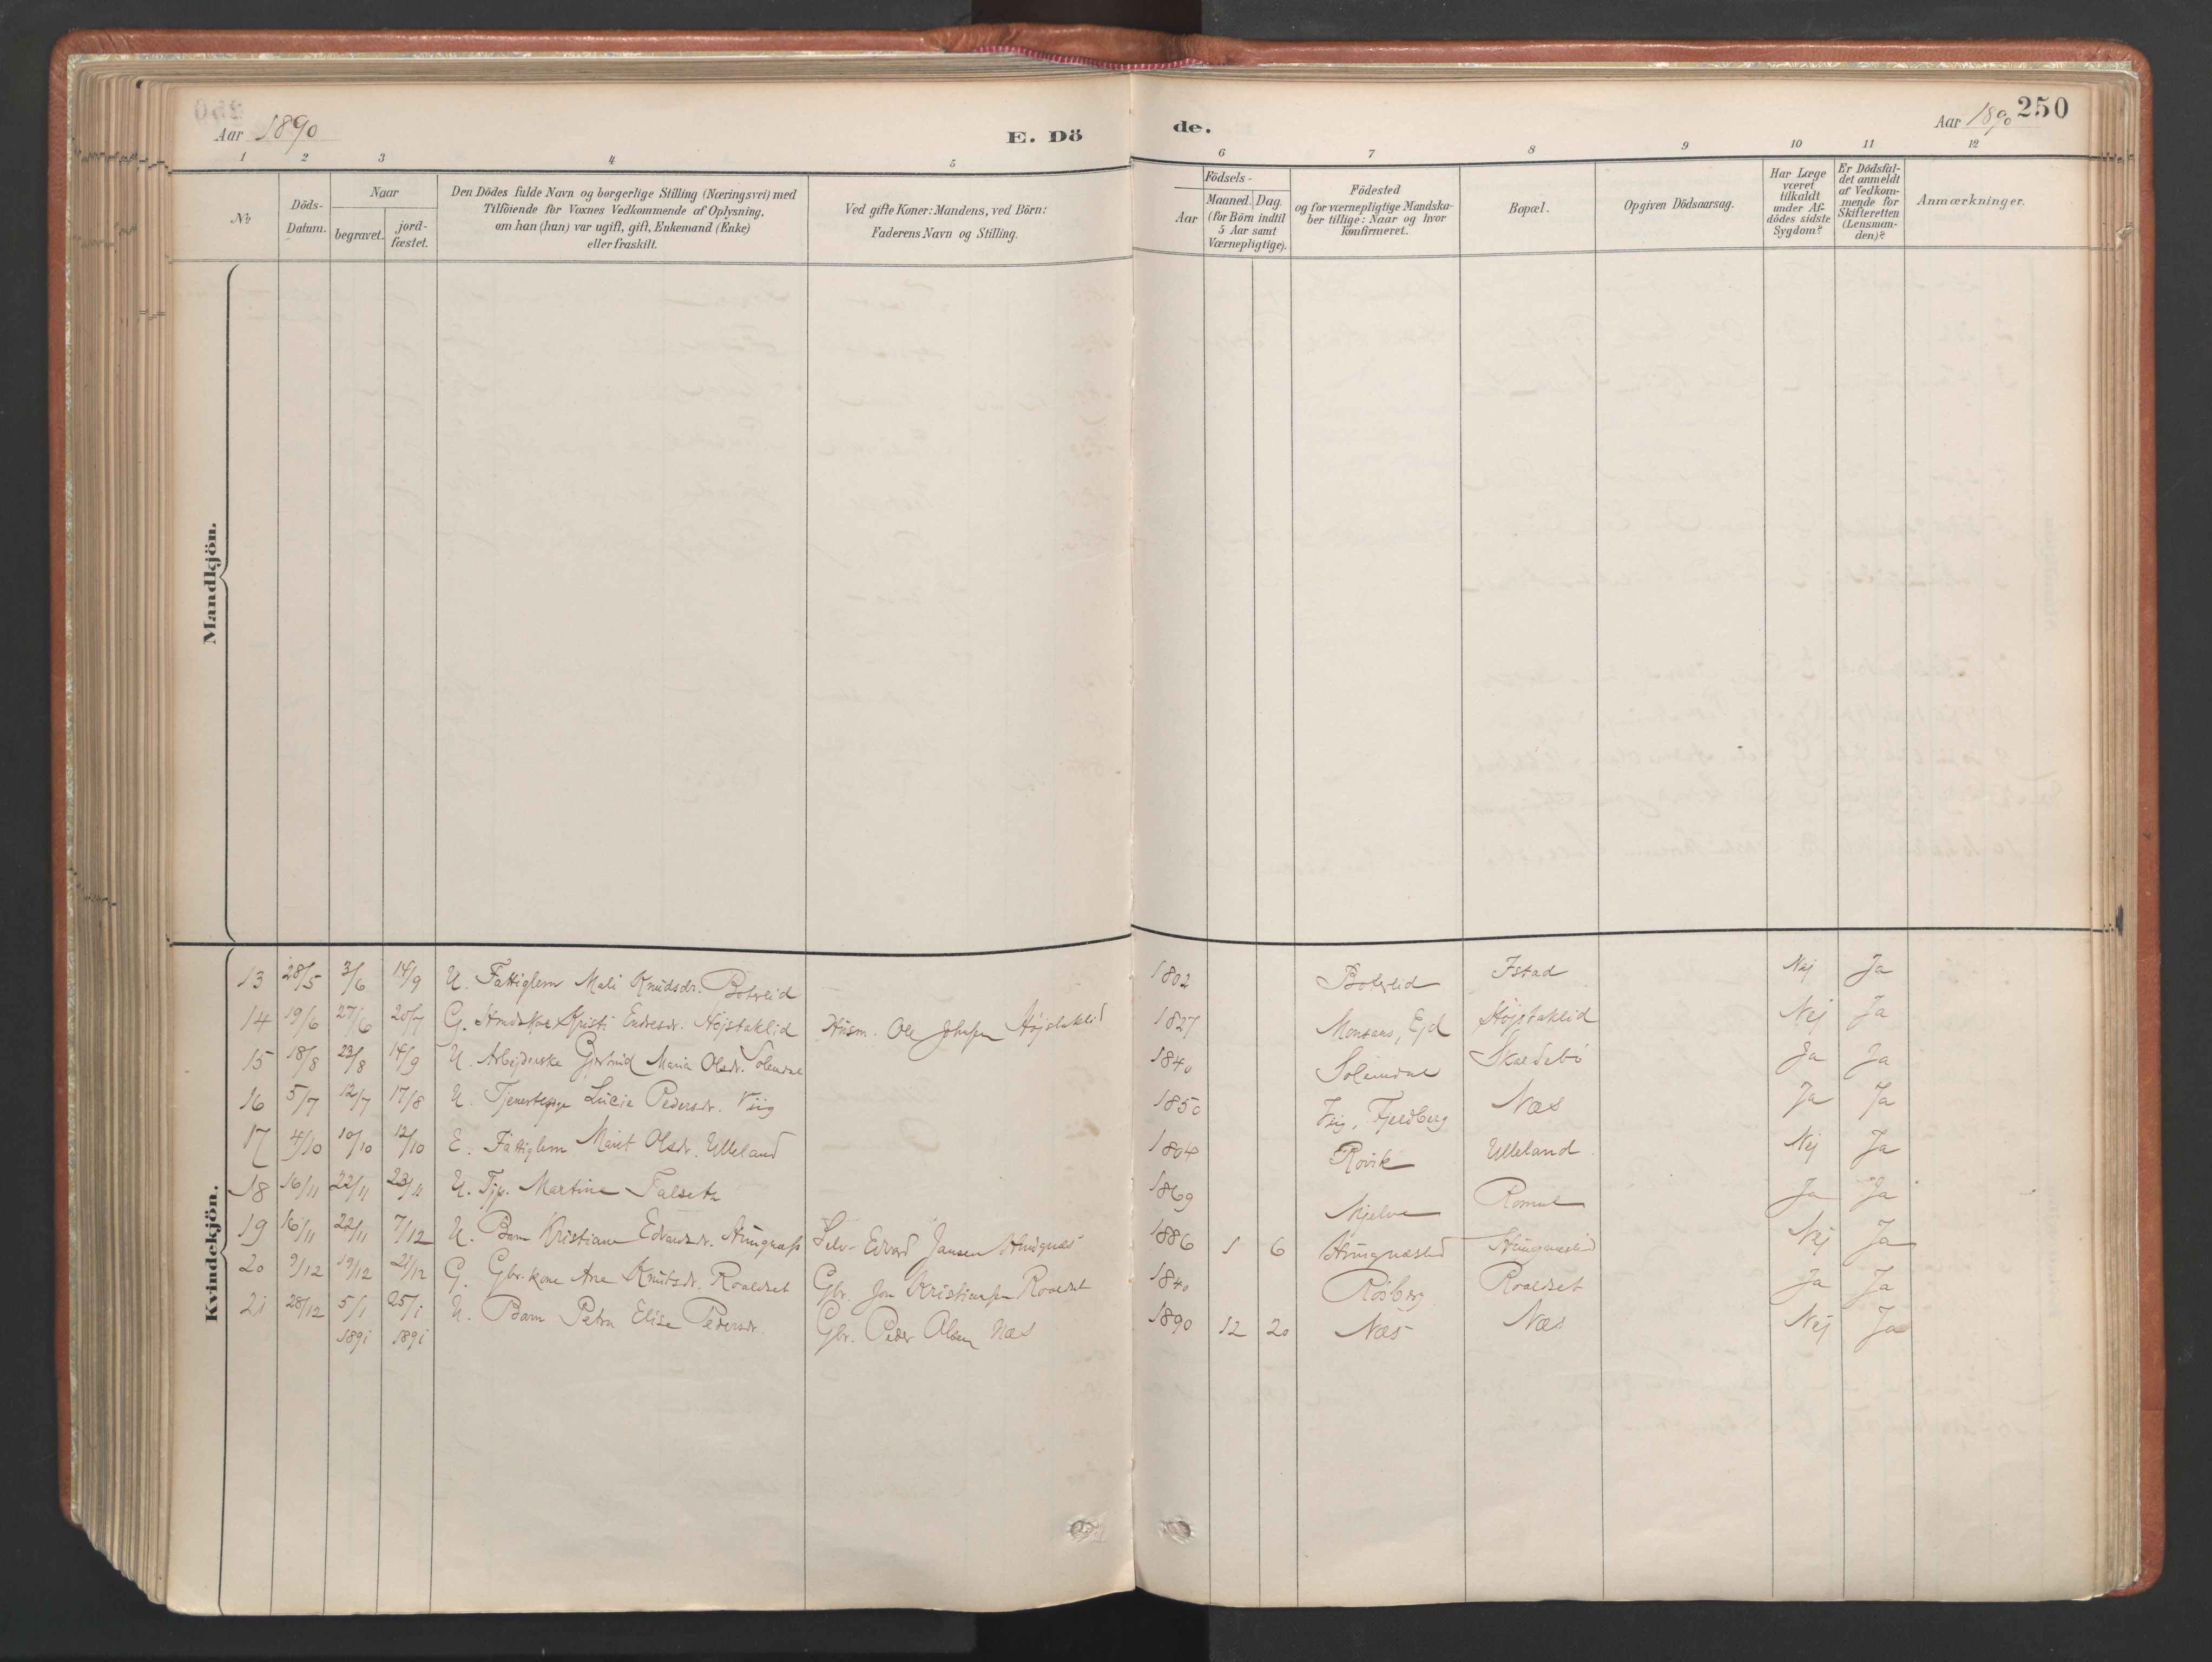 Aar 1890
E. Dö
de.
Aar 1890
250
1 2 3 4 5 6 7 8 9 10 11 12
Nr.
Döds-
Datum.
Naar
begravet.
jord-
fæstet.
Den Dödes fulde Navn og borgerlige Stilling (Næringsvei) med
Tilföiende for Voxnes Vedkommende af Oplysning,
om han (hun) var ugift, gift, Enkemand (Enke)
eller fraskilt.
Ved gifte Koner: Mandens, ved Börn:
Faderens Navn og Stilling.
Födsels-
Aar
Maaned. Dag.
(for Börn indtil
5 Aar samt
Værnepligtige).
Födested
og for værnepligtige Mandska-
ber tillige: Naar og hvor
Konfirmeret.
Bopæl.
Opgiven Dödsaarsag.
Har Læge
været
tilkaldt
under Af-
dödes sidste
Sygdom?
Er Dödsfal-
det anmeldt
af Vedkom-
mende for
Skifteretten
(Lensman-
den)?
Anmærkninger.
Mandkjön.
Kvindekjön.
13 28/5 3/6 14/9 U. Fattiglem Mali Knudsdr. Boterlid — 1802 Boterlid Istad Nej Ja
14 19/6 27/6 20/7 G. Kristi Endresdr. Højstaklid Husm. Ole Johnsen Højstaklid 1827 Monsaas, Ejd Højstaklid Nej Ja
15 18/8 23/8 14/9 U. Arbejderske Gjertrud Maria Olsdr. Solemdal — 1840 Solemdal Skaldebø Ja Ja
16 5/7 12/7 17/8 U. Tjenestepige Lucie Pedersdr. Viig — 1850 Viig, Fjeldberg Næs Ja Ja
17 4/10 10/10 12/10 E. Fattiglem Marit Olsdr. Ulleland — 1804 Røvik Ulleland Nej Ja
18 16/11 22/11 23/11 U. Tjp. Martine Talset 1869 Mjelve Ja Ja
19 16/11 22/11 7/12 U. Barn Kristiane Edvardsdr. Selv- Edvard Jansen 1886 1 6 Nej Ja
20 9/12 19/12 21/12 G. Gbr. kone Ane Knutsdr. Roaldset Gbr. Jon Kristiansen Roaldset 1840 Røsberg Roaldset Ja Ja
21 28/12 5/1 25/1 U. Barn Petra Elise Pedersdr. Gbr. Peder Olsen Næs 1890 12 20 Næs Næs Nej Ja
1891 1891